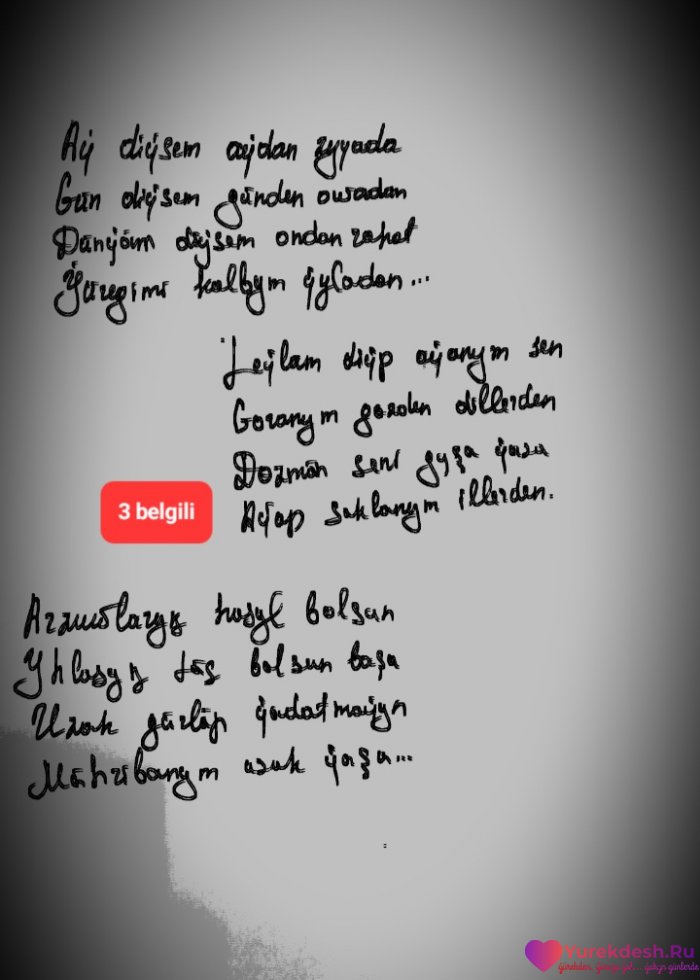 Aý diýsem aýdan zyýada
Gün diýsem günden owadan
Dünýäm diýsem ondan rahat
Ýüregimi kalbym ýyladan...
Leýlam diýp aýanym sen
Goranym gözden dillerden
Dözmän seni gyşa ýaza
Aýap saklanym illerden.
3 belgili
Arzuwlaryň hasyl bolsun
Yhlasyň täç bolsun başa
Uzak gürläp ýadatmaýyn
Mähribanym uzak ýaşa...
Yurekdesh.Ru